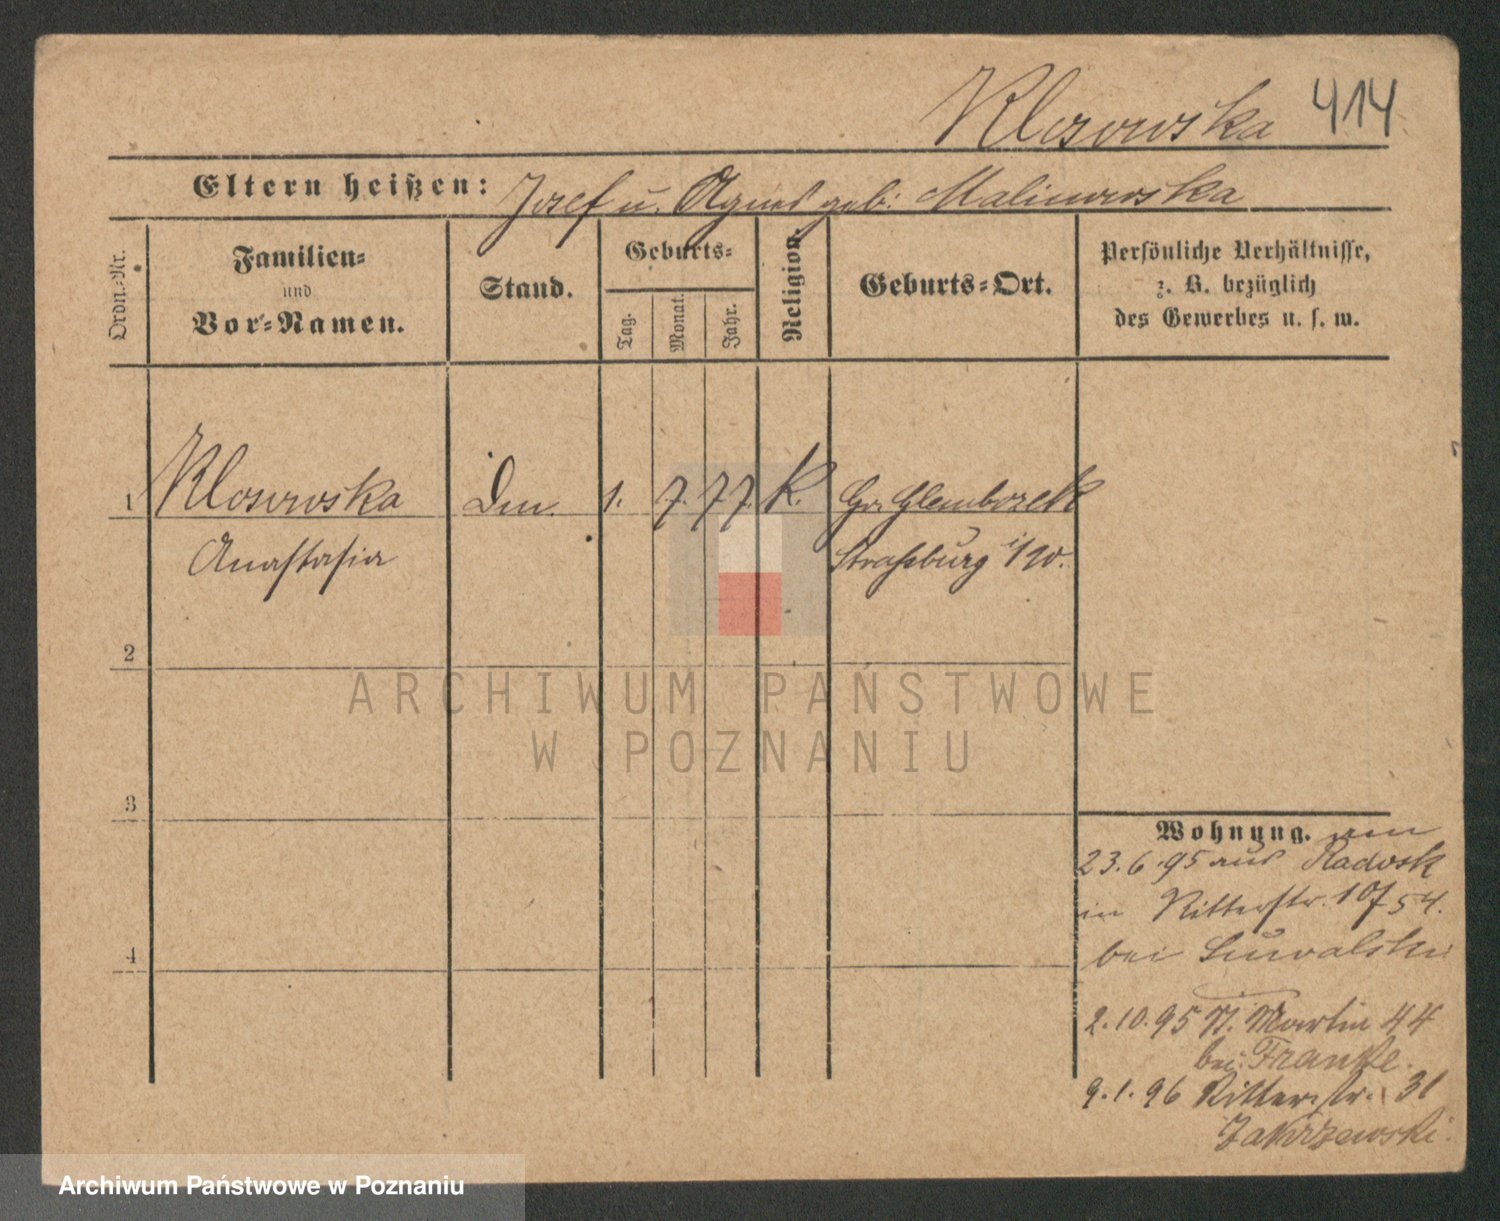 Klosowska 414
Eltern heißen: Josef u. Agnes geb: Malinowska
Ordn.-Nr.
Familien-
und
Vor-Namen.
Stand.
Geburts-
Tag.
Monat.
Jahr.
Religion.
Geburts-Ort.
Persönliche Verhältnisse,
z. B. bezüglich
des Gewerbes u. s. w.
1 Klosowska
Anastasia
1. 7. 77. K.
Gr. Glemboczek
Straßburg i/W.
2
3
4
ARCHIWUM PAŃSTWOWE
W POZNANIU
Wohnung. am
23.6.95 aus Radosk
in Ritterstr. 54.
bei Suwalski
2.10.95 St. Martin 44
bei Franke.
9.1.96 Ritterstr. 31
Zakrzewski.
Archiwum Państwowe w Poznaniu